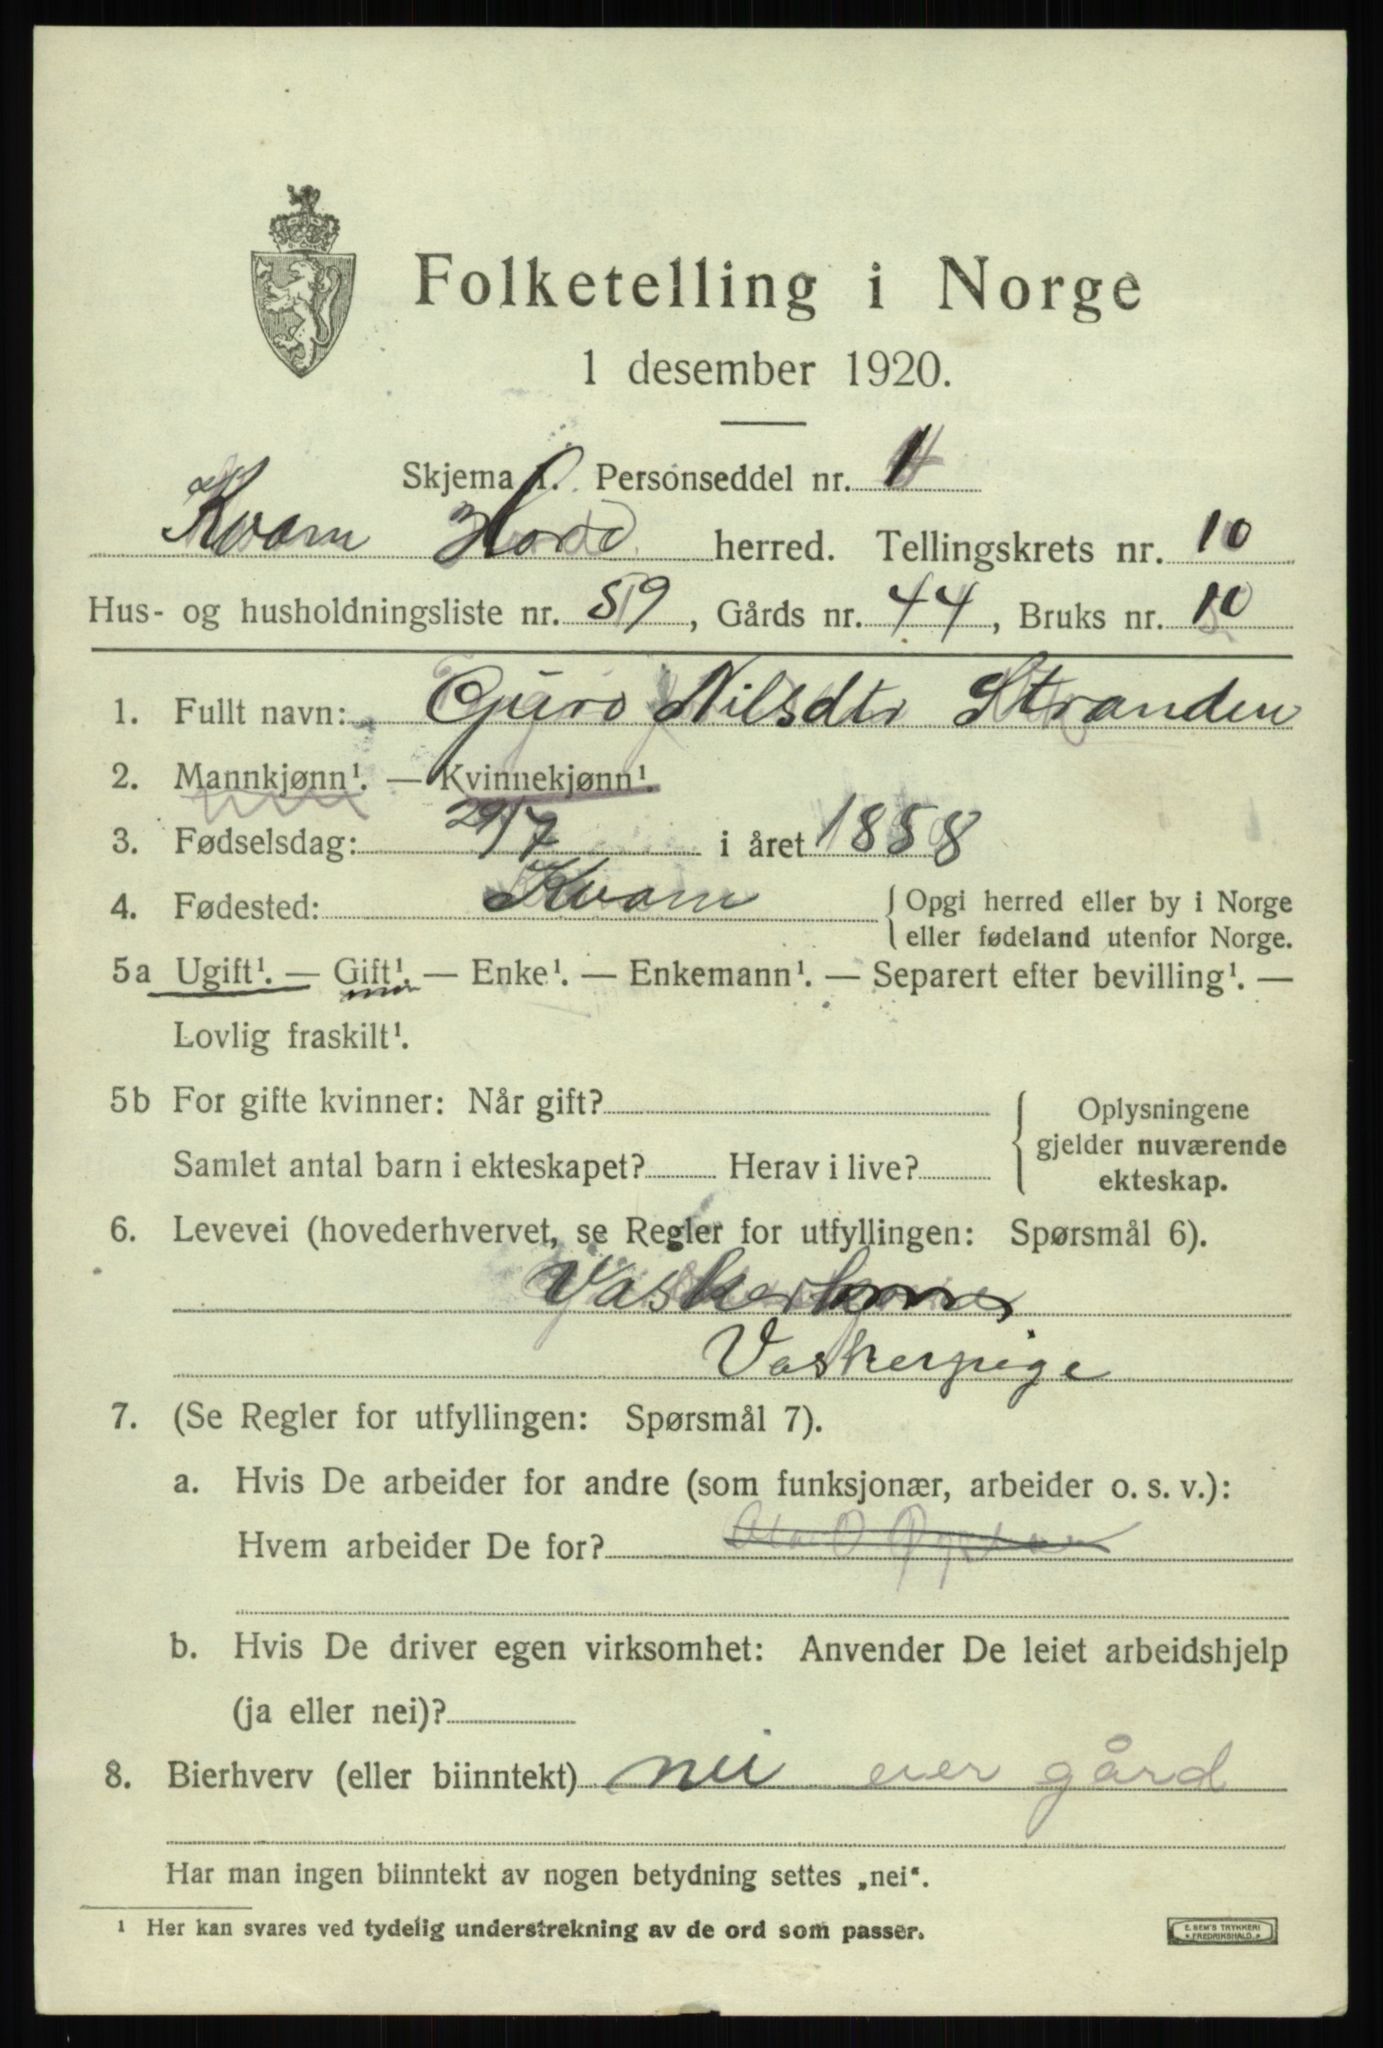 Folketelling i Norge
1 desember 1920.
Skjema 1. Personseddel nr. 1
Kvam Hord herred. Tellingskrets nr. 10
Hus- og husholdningsliste nr. 59, Gårds nr. 44, Bruks nr. 10
1. Fullt navn: Guro Nilsdtr Stranden
2. Mannkjønn¹. — Kvinnekjønn¹.
3. Fødselsdag: 29/7 i året 1858
4. Fødested: Kvam { Opgi herred eller by i Norge
eller fødeland utenfor Norge.
5a Ugift¹. — Gift¹. — Enke¹. — Enkemann¹. — Separert efter bevilling¹. —
Lovlig fraskilt¹.
5b For gifte kvinner: Når gift?
Samlet antal barn i ekteskapet? Herav i live?
Oplysningene
gjelder nuværende
ekteskap.
6. Levevei (hovederhvervet, se Regler for utfyllingen: Spørsmål 6).
Vaskerkone
Vaskerpige
7. (Se Regler for utfyllingen: Spørsmål 7).
a. Hvis De arbeider for andre (som funksjonær, arbeider o. s. v.):
Hvem arbeider De for?
b. Hvis De driver egen virksomhet: Anvender De leiet arbeidshjelp
(ja eller nei)?
8. Bierhverv (eller biinntekt) nei eier gård
Har man ingen biinntekt av nogen betydning settes „nei“.
¹ Her kan svares ved tydelig understrekning av de ord som passer.
E. SEM'S TRYKKERI
FREDRIKSHALD.